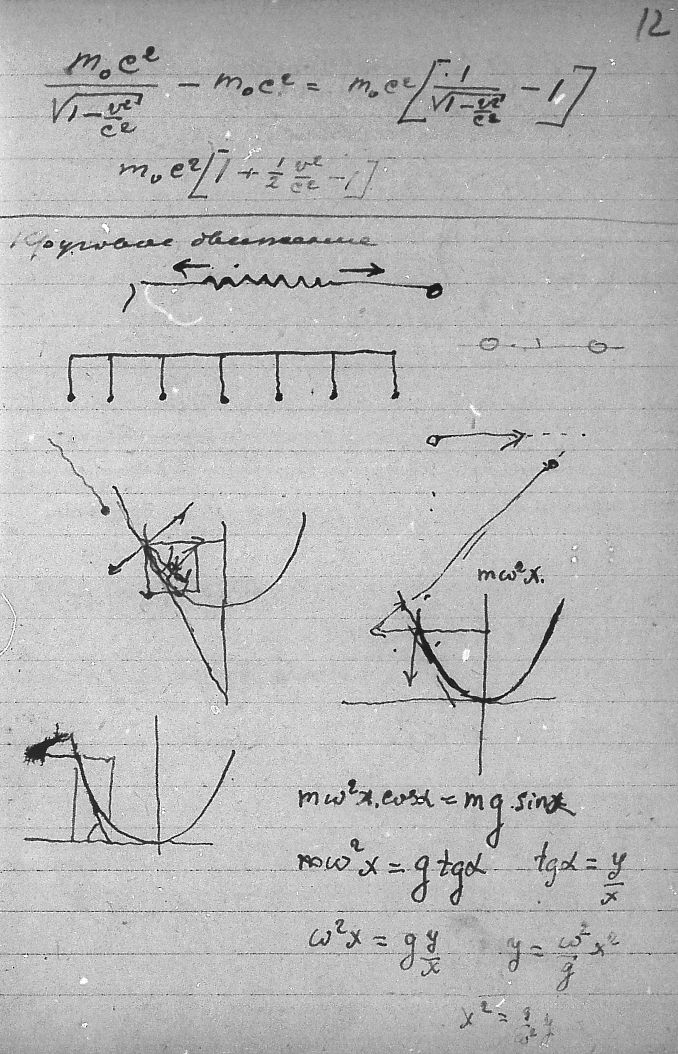 12
m₀c²/√(1-v²/c²) - m₀c² = m₀c²[1/√(1-v²/c²) - 1]
m₀c²[1 + 1/2 v²/c² - 1]
Круговое движение
mω²x.
mω²x.cosα = mg.sinα
mω²x = g tgα tgα = y/x
ω²x = g y/x y = ω²/g x²
x² = g/ω² y